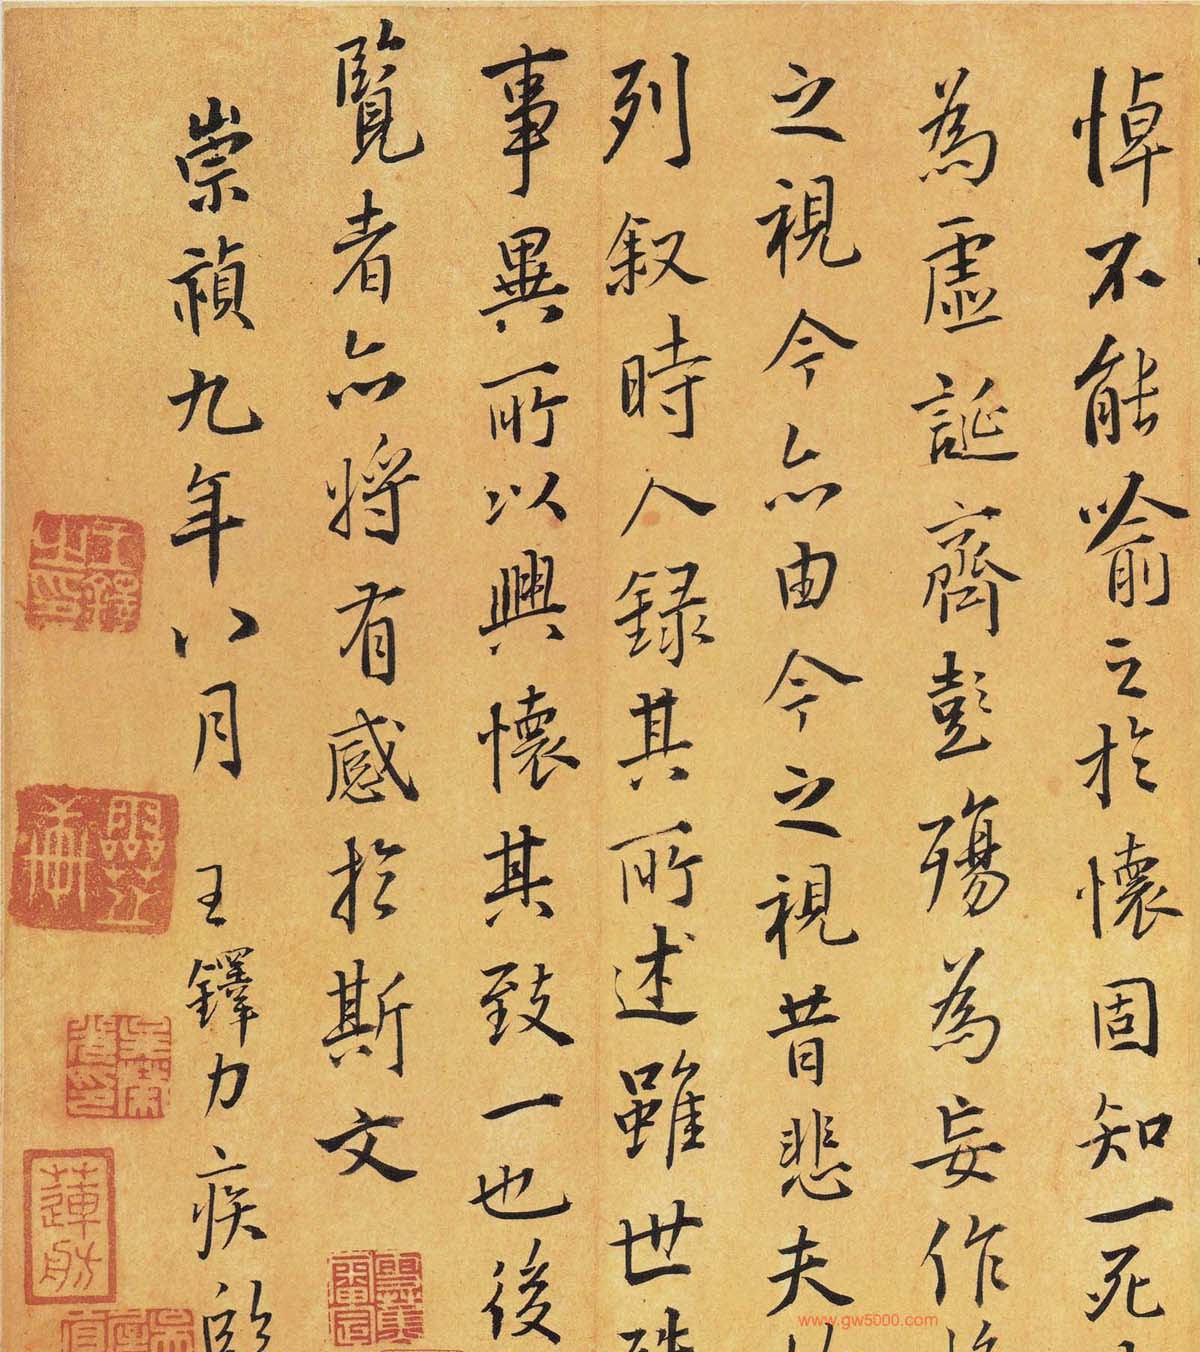 悼不能喻之於懷固知一死
為虛誕齊彭殤為妄作
之視今亦由今之視昔悲夫
列叙時人録其所述雖世
事異所以興懷其致一也後
覽者亦將有感於斯文
崇禎九年八月 王鐸力疾臨
王鐸之印
蓮舫
www.gw5000.com